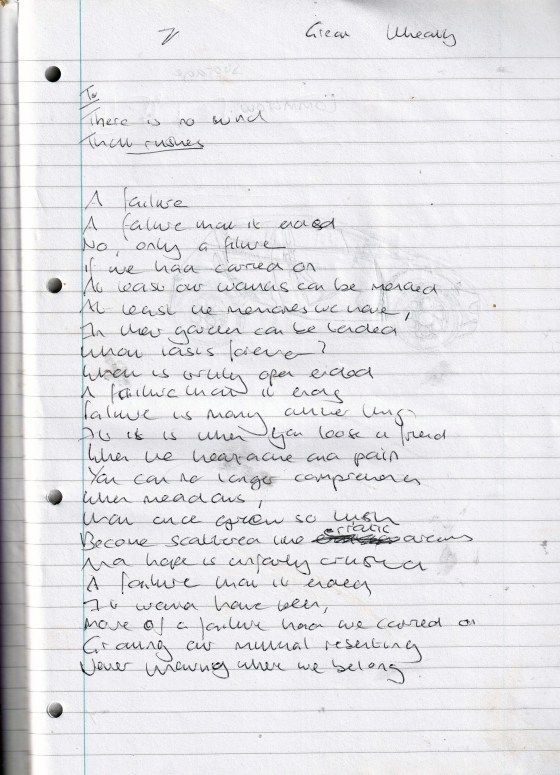 To
There is no wind
That rushes
A failure
A failure that it ended
No, only a filure
If we had carried on
At least our wounds can be mended
At least the memories we have,
In their garden can be tended
What lasts forever?
What is truly open ended
A failure that it ends
Failure is many other things
It is is when you loose a friend
When the heartache and pain
You can no longer comprehend
When meadows,
That once grew so lush
Become scattered like erratic
And hope is unfairly crushed
A failure that it ended
It would have been,
More of a failure had we carried on
Growing our mutual resenting
Never knowing where we belong